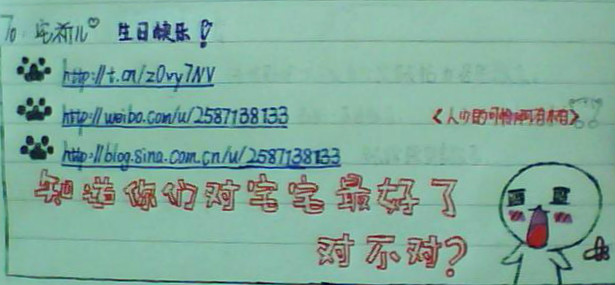 To. 宅祈儿♡ 生日快乐!
http://t.cn/zOvy7NV
http://weibo.com/u/2587138133
http://blog.sina.com.cn/u/2587138133
知道你们对宅宅最好了
对不对?